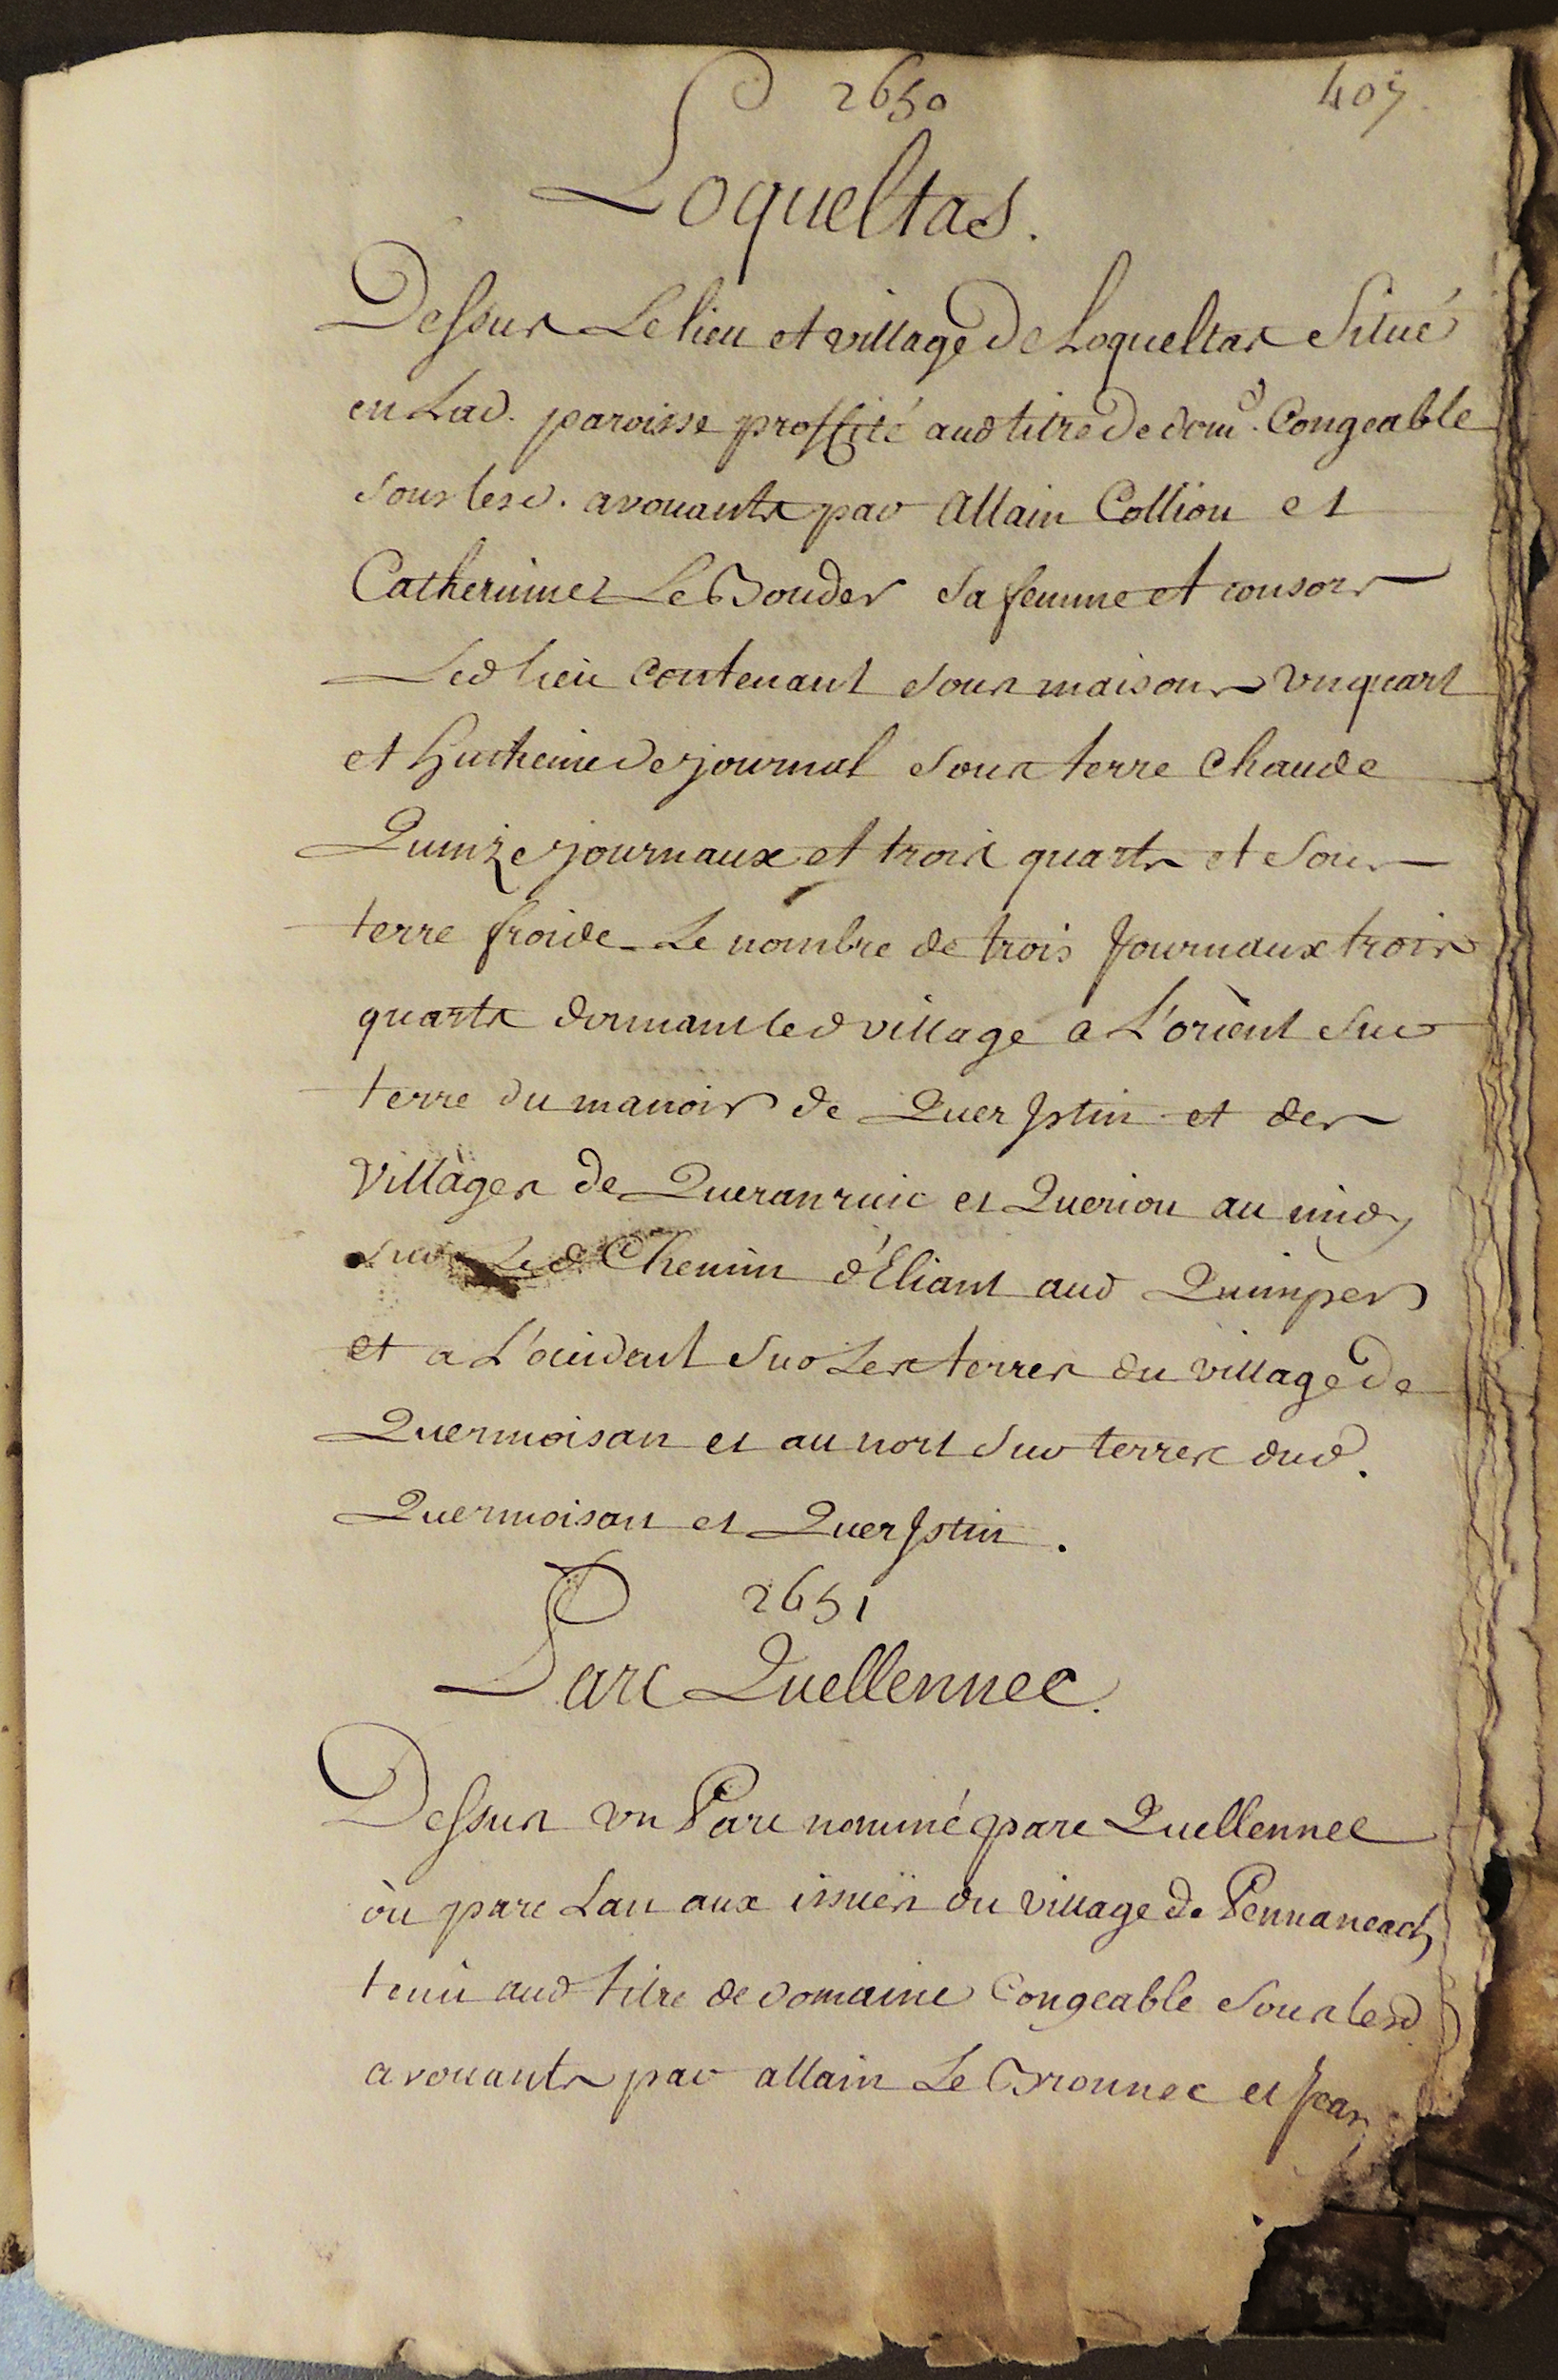 2650
407
Loqueltas.
Dessus Le lieu et village de Loqueltas Situé
en Lad. paroisse proffité aud titre de dom.e Congeable
sous lesd. avouants par Allain Colliou et
Catherinne Le Bouder sa femme et consors
Led lieu contenant sous maisons un quart
et huitieme de journal sous terre chaude
Quinze journaux et trois quarts et sous
terre froide Le nombre de trois Journaux trois
quarts donnant led village a L'orient sur
terre du manoir de QuerJstin et des
Villages de Queranruic et Queriou au midy
sur Led Chemin d'Eliant aud Quimper
et a L'occident sur Les terres du village de
Quermoisan et au nort sur terres dud.
Quermoisan et QuerJstin.
2651
Parc Quellennec.
Dessus un Parc nommé parc Quellennec
òu parc Lan aux issuës du village de Pennaneach
tenu aud titre de domaine Congeable sous lesd
avouants par allain Le Bronnec et Jean